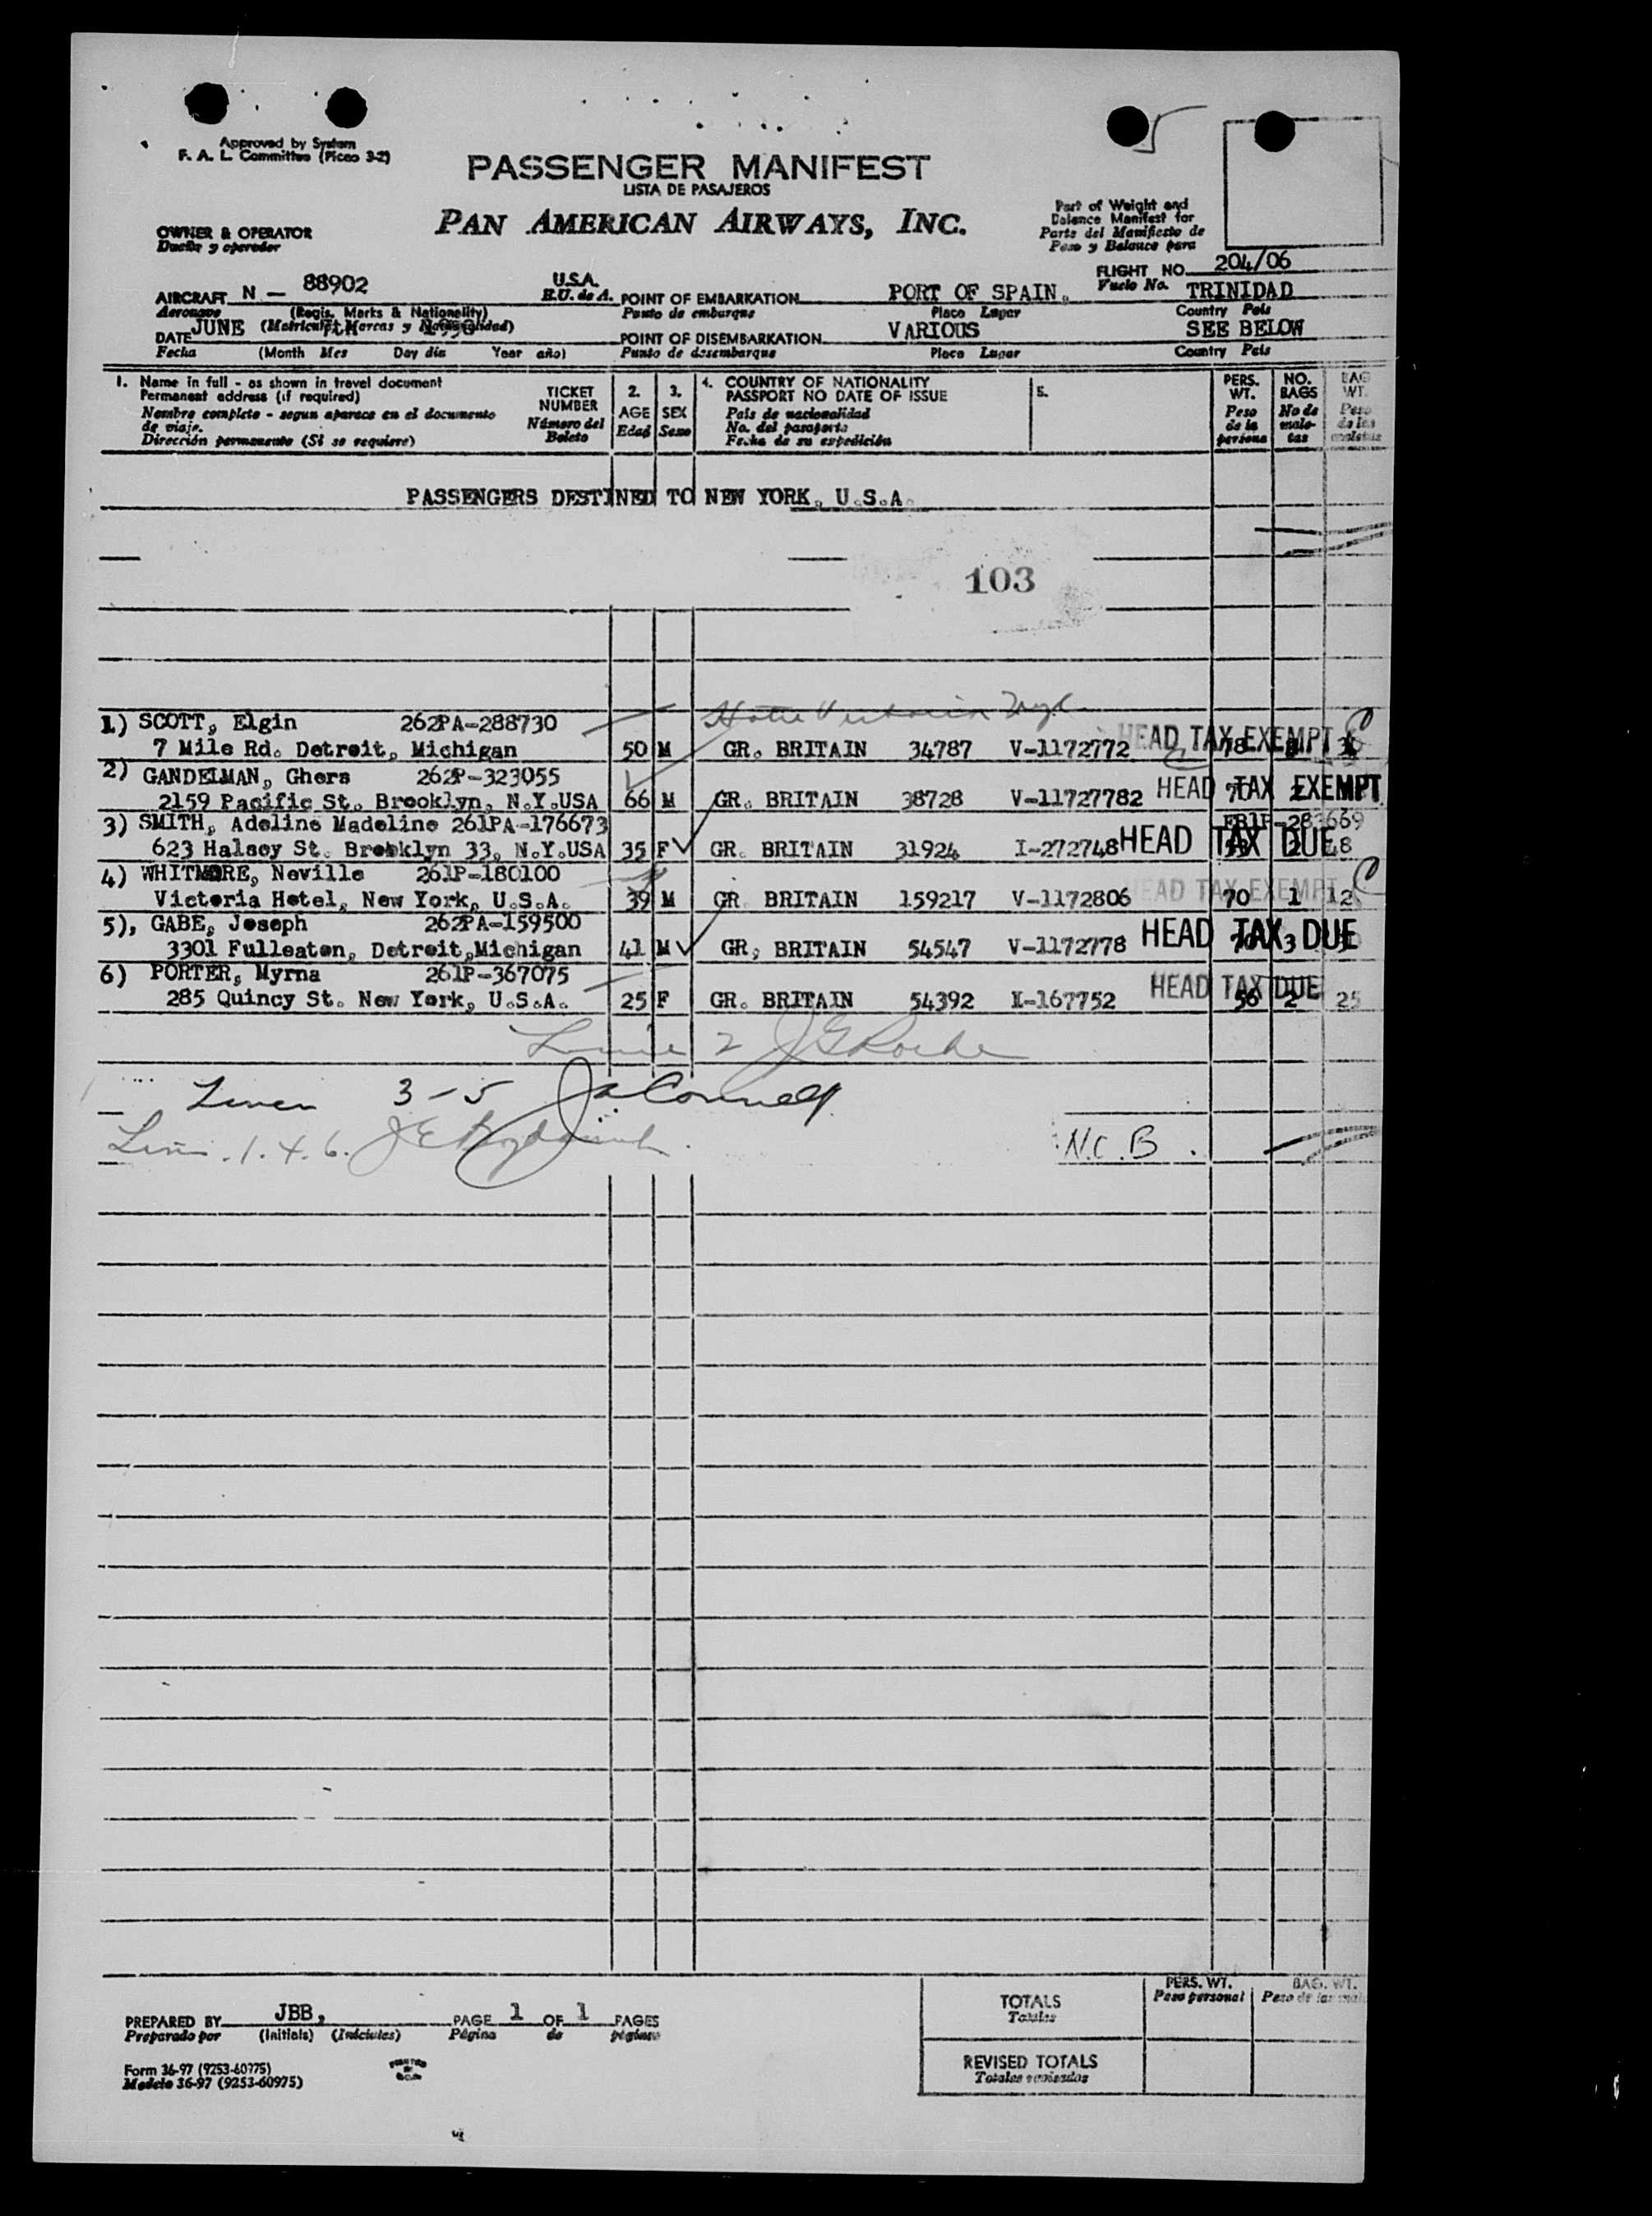 Approved by System
F. A. L. Committee (Picao 3-2)
PASSENGER MANIFEST
LISTA DE PASAJEROS
PAN AMERICAN AIRWAYS, INC.
OWNER & OPERATOR
Dueño y operador
Part of Weight and
Balance Manifest for
Parte del Manifiesto de
Peso y Balance para
FLIGHT NO. 204/06
Vuelo No.
AIRCRAFT N - 88902 U.S.A.
Aeronave (Regis. Marks & Nationality) E.U. de A.
(Matricula, Marcas y Nacionalidad)
POINT OF EMBARKATION PORT OF SPAIN. TRINIDAD
Punto de embarque Place Lugar Country Pais
DATE JUNE
Fecha (Month Mes Day dia Year año)
POINT OF DISEMBARKATION VARIOUS SEE BELOW
Punto de desembarque Place Lugar Country Pais
1. Name in full - as shown in travel document
Permanent address (if required)
Nombre completo - segun aparece en el documento
de viaje.
Dirección permanente (Si se requiere)
TICKET
NUMBER
Número del
Boleto
2.
AGE
Edad
3.
SEX
Sexo
4. COUNTRY OF NATIONALITY
PASSPORT NO DATE OF ISSUE
Pais de nacionalidad
No. del pasaporte
Fecha de su expedición
5.
PERS.
WT.
Peso
de la
persona
NO.
BAGS
No de
male-
tas
BAG
WT.
Peso
de las
maletas
PASSENGERS DESTINED TO NEW YORK, U.S.A.
103
1) SCOTT, Elgin 262PA-288730
7 Mile Rd. Detroit, Michigan 50 M GR. BRITAIN 34787 V-1172772 HEAD TAX EXEMPT 78
2) GANDELMAN, Ghers 262P-323055
2159 Pacific St. Brooklyn, N.Y.USA 66 M GR. BRITAIN 38728 V-11727782 HEAD TAX EXEMPT 70
3) SMITH, Adeline Madeline 261PA-176673
623 Halsey St. Brooklyn 33, N.Y.USA 35 F GR. BRITAIN 31924 I-272748 HEAD TAX DUE 2 48
4) WHITMORE, Neville 261P-180100
Victoria Hotel, New York, U.S.A. 39 M GR BRITAIN 159217 V-1172806 HEAD TAX EXEMPT 70 1 12
5), GABE, Joseph 262PA-159500
3301 Fulleaton, Detroit, Michigan 41 M GR, BRITAIN 54547 V-1172778 HEAD TAX DUE 3
6) PORTER, Myrna 261P-367075
285 Quincy St. New York, U.S.A. 25 F GR. BRITAIN 54392 I-167752 HEAD TAX DUE 56 2 25
Line 2 J G Roche
Lines 3-5
Lines 1. 4. 6.
N.C.B.
PREPARED BY JBB, PAGE 1 OF 1 PAGES
Preparado por (Initials) (Iniciales) Página de páginas
Form 36-97 (9253-60975)
Modelo 36-97 (9253-60975)
TOTALS
Totales
REVISED TOTALS
Totales revisados
PERS. WT.
Peso personal
BAG. WT.